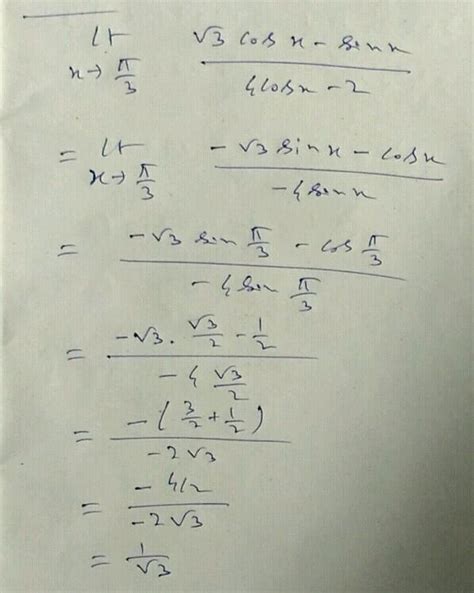 lt x→π/3 (√3 cos x - sin x)/(4cos x - 2)
= lt x→π/3 (-√3 sin x - cos x)/(-4 sin x)
= (-√3 sin π/3 - cos π/3)/(-4 sin π/3)
= (-√3 . √3/2 - 1/2)/(-4 √3/2)
= -(3/2 + 1/2)/(-2√3)
= (-4/2)/(-2√3)
= 1/√3